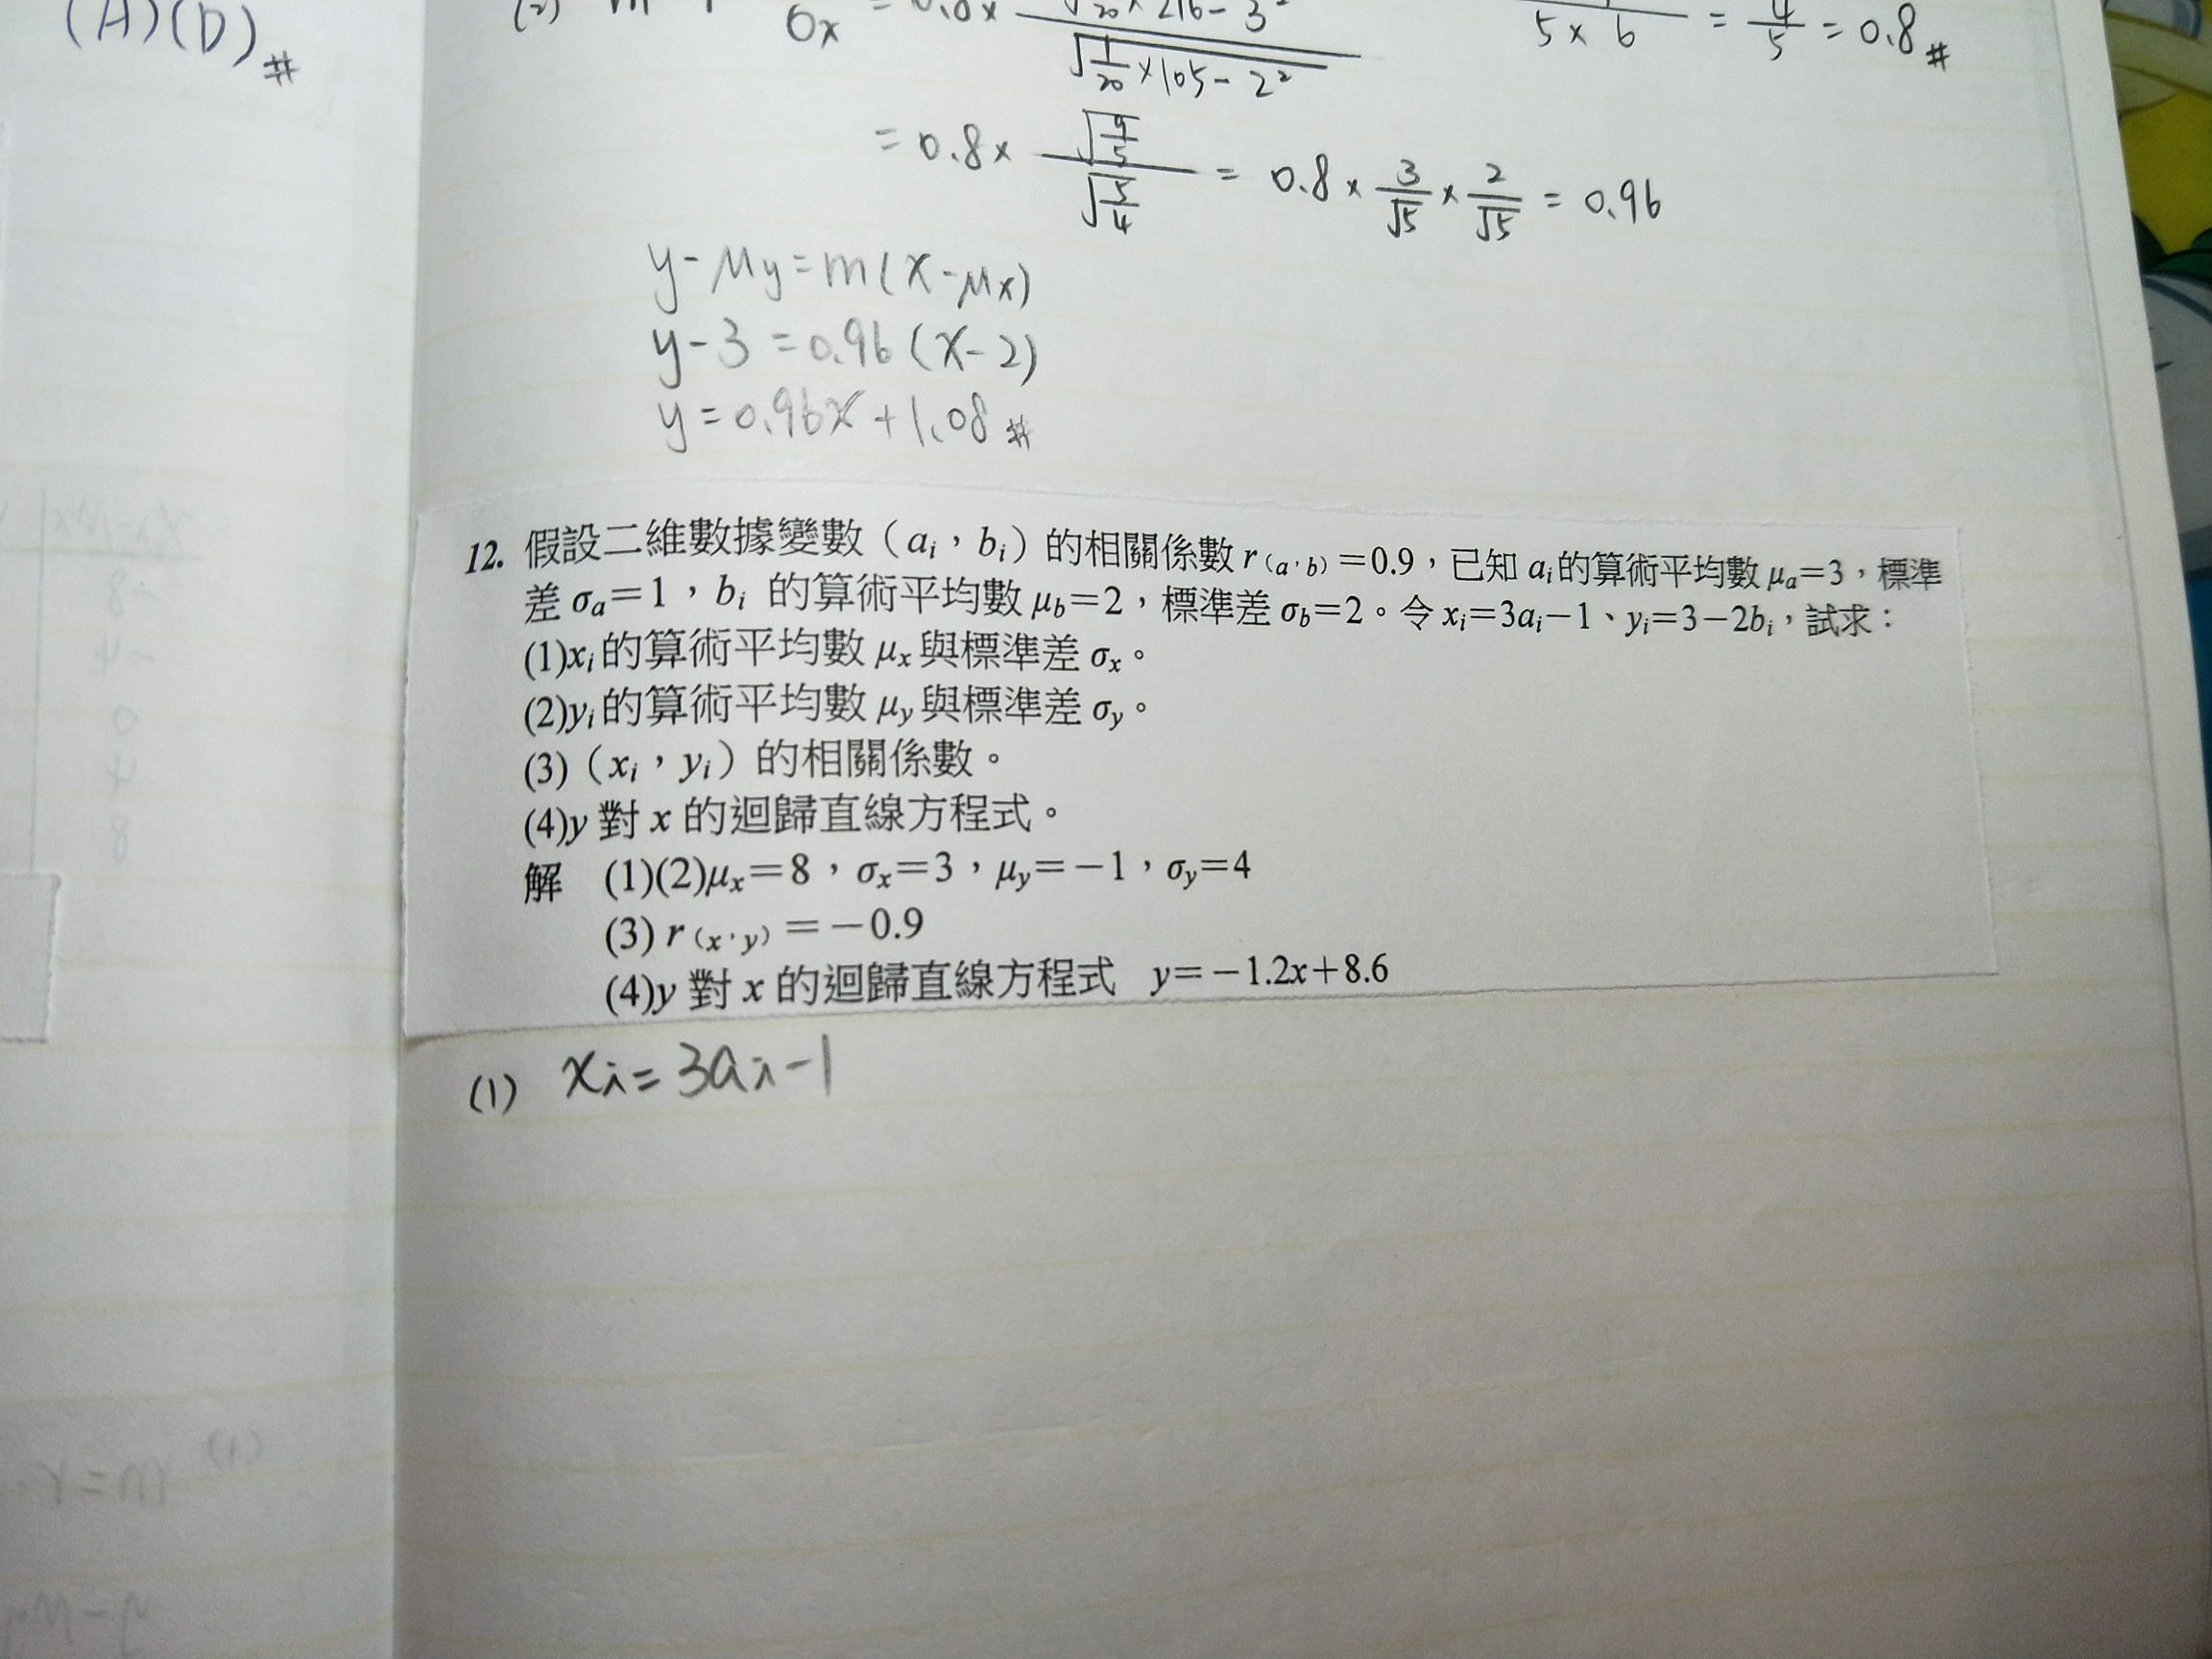 (A)(D)#
(2)
σx = 0.8× √1/20×216-3² / √1/20×105-2²
5×6 = 4/5 = 0.8 #
= 0.8× √9/5 / √5/4 = 0.8 × 3/√5 × 2/√5 = 0.96
y-μy=m(x-μx)
y-3=0.96(x-2)
y=0.96x+1.08 #
12. 假設二維數據變數(ai,bi)的相關係數 r(a,b)=0.9,已知 ai的算術平均數 μa=3,標準
差 σa=1,bi 的算術平均數 μb=2,標準差 σb=2。令 xi=3ai-1、yi=3-2bi,試求:
(1)xi的算術平均數 μx與標準差 σx。
(2)yi的算術平均數 μy與標準差 σy。
(3)(xi,yi)的相關係數。
(4)y 對 x 的迴歸直線方程式。
解 (1)(2)μx=8,σx=3,μy=-1,σy=4
(3) r(x,y)=-0.9
(4)y 對 x 的迴歸直線方程式 y=-1.2x+8.6
(1) xi=3ai-1